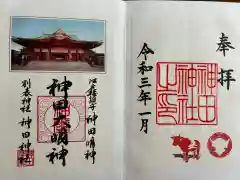 奉拝
令和三年一月
神田
神社
之印
江戸総鎮守 神田明神
神田大明神
別表神社 神田神社